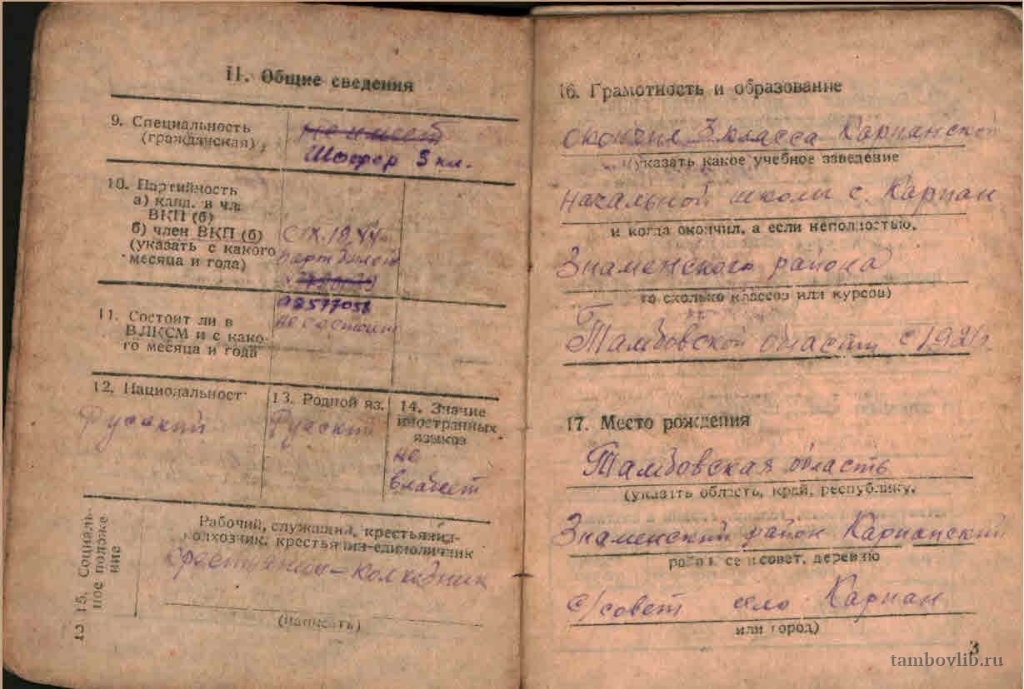 II. Общие сведения
9. Специальность
(гражданская)
не имеет
Шофер 3 кл.
10. Партийность
а) канд. в чл.
ВКП (б)
б) член ВКП (б)
(указать с какого
месяца и года)
с IX.1944
парт билет
№2577056
11. Состоит ли в
ВЛКСМ и с како-
го месяца и года
не состоит
12. Национальност
Русский
13. Родной яз.
Русский
14. Знание
иностранных
языков
не
владеет
15. Социаль-
ное положе-
ние
Рабочий, служащий, крестьянин-
колхозчик, крестьянин-единоличник
крестьянин-колхозник
(написать)
2
16. Грамотность и образование
окончил 3 класса Карпанской
(указать какое учебное заведение
начальной школы с. Карпан
и когда окончил, а если неполностью,
Знаменского района
то сколько классов или курсов)
Тамбовской области с
17. Место рождения
Тамбовская область
(указать область, край, республику,
Знаменский район Карпанский
район, сельсовет, деревню
с/совет село Карпан
или город)
3
tambovlib.ru